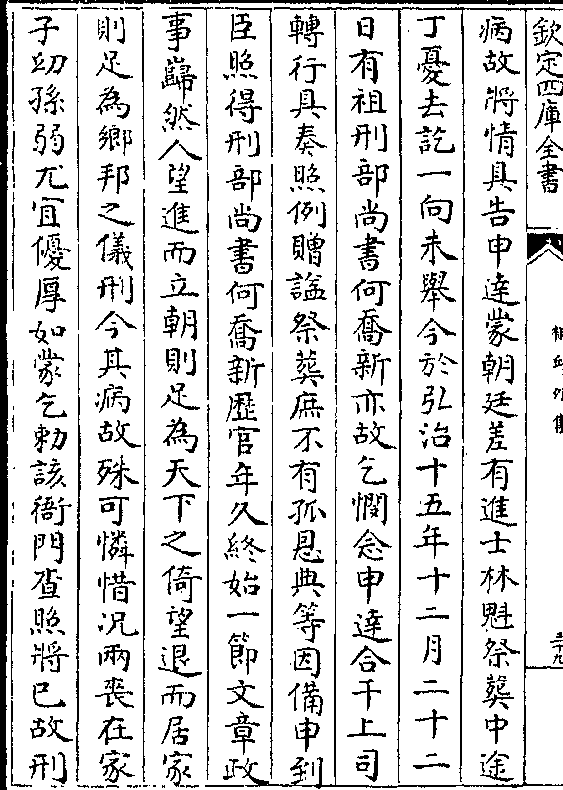 欽定四庫全書
病故將情具告申達蒙朝廷差有進士林魁祭葬中途
丁憂去訖一向未舉今於弘治十五年十二月二十二
日有祖刑部尚書何喬新亦故乞憫念申達合干上司
轉行具奏照例贈諡祭葬庶不有孤恩典等因備申到
臣照得刑部尚書何喬新歷官年久終始一節文章政
事巋然人望進而立朝則足為天下之倚望退而居家
則足為鄉邦之儀刑今其病故殊可憐惜況兩喪在家
子幼孫弱尤宜優厚如蒙乞勅該衙門查照將已故刑